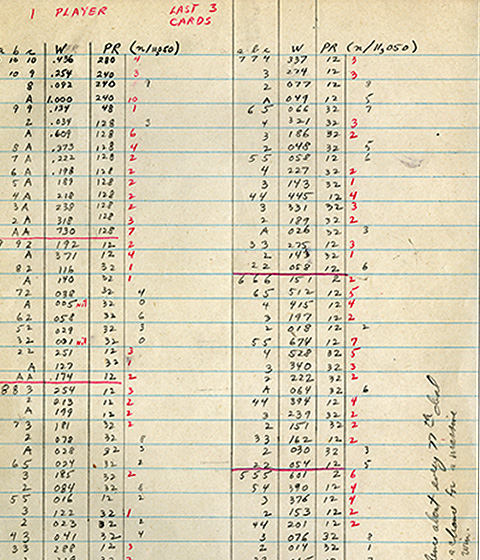 1 PLAYER LAST 3 CARDS
a b c W PR (n/11,050)
10 10 .436 280 4
10 9 .254 240 3
8 .092 240 9
A 1.000 240 10
9 9 .134 48 1
2 .034 128 3
A .609 128 6
8 A .373 128 4
7 A .222 128 2
6 A .198 128 2
5 A .189 128 2
4 A .218 128 2
3 A .238 128 2
2 A 318 128 3
A A 730 128 7
9 9 2 192 12 2
A 371 12 4
8 2 116 32 1
A 140 32 1
7 2 038 32 4
A 005 32 0
6 2 058 32 6
5 2 029 32 3
3 2 001 32 0
2 2 251 12 3
A 127 32 1
A A 174 12 2
8 8 3 254 12 3
2 213 12 2
A 199 12 2
7 3 181 32 2
2 078 32 8
A 028 32 3
6 5 024 32 2
3 185 32 2
2 084 32
5 5 016 12 2
3 122 32 1
2 023 32 2
4 3 041 32 4
3 3 288 12 3
a b c W PR (n/11,050)
7 7 4 337 12 3
3 274 12 3
2 077 12 8
A 049 12 5
6 5 066 32 7
4 321 32 3
3 186 32 2
2 048 32 5
5 5 058 12 6
4 227 32 2
3 143 32 1
4 4 445 12 4
3 331 32 3
2 189 32 2
A 026 32 3
3 3 275 12 3
2 143 32 1
2 2 058 12 6
6 6 6 151 2 2
6 5 512 12 5
4 415 12 4
3 197 12 2
2 018 12 2
5 5 674 12 7
4 528 32 5
3 340 32 3
2 222 32 2
A 064 32 6
4 4 394 12 4
3 239 32 2
2 151 32 2
3 3 162 12 2
2 030 32 3
2 2 054 12 5
5 5 5 601 2 6
5 4 390 12 4
3 376 12 4
2 153 12 2
4 4 201 12 2
3 076 32 8
2 014 32
about every nth deal
chance for a machine
win.